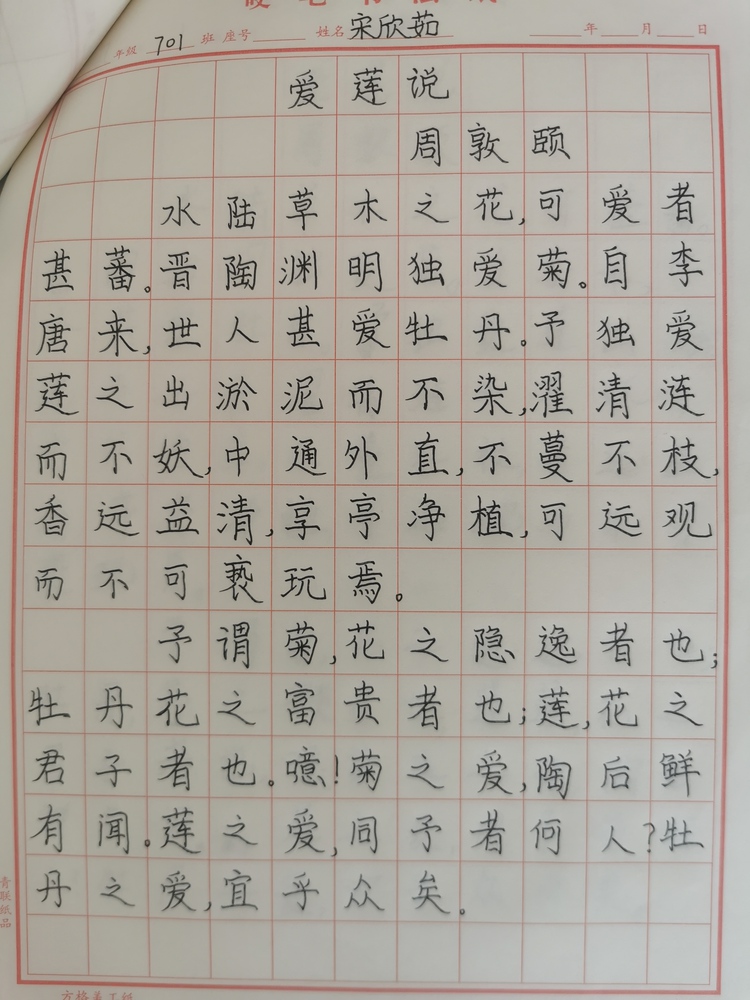 年级 701 班 座号 姓名 宋欣茹 年 月 日
爱莲说
周敦颐
水陆草木之花,可爱者
甚蕃。晋陶渊明独爱菊。自李
唐来,世人甚爱牡丹。予独爱
莲之出淤泥而不染,濯清涟
而不妖,中通外直,不蔓不枝,
香远益清,享亭净植,可远观
而不可亵玩焉。
予谓菊,花之隐逸者也;
牡丹花之富贵者也;莲,花之
君子者也。噫!菊之爱,陶后鲜
有闻。莲之爱,同予者何人?牡
丹之爱,宜乎众矣。
青联纸品